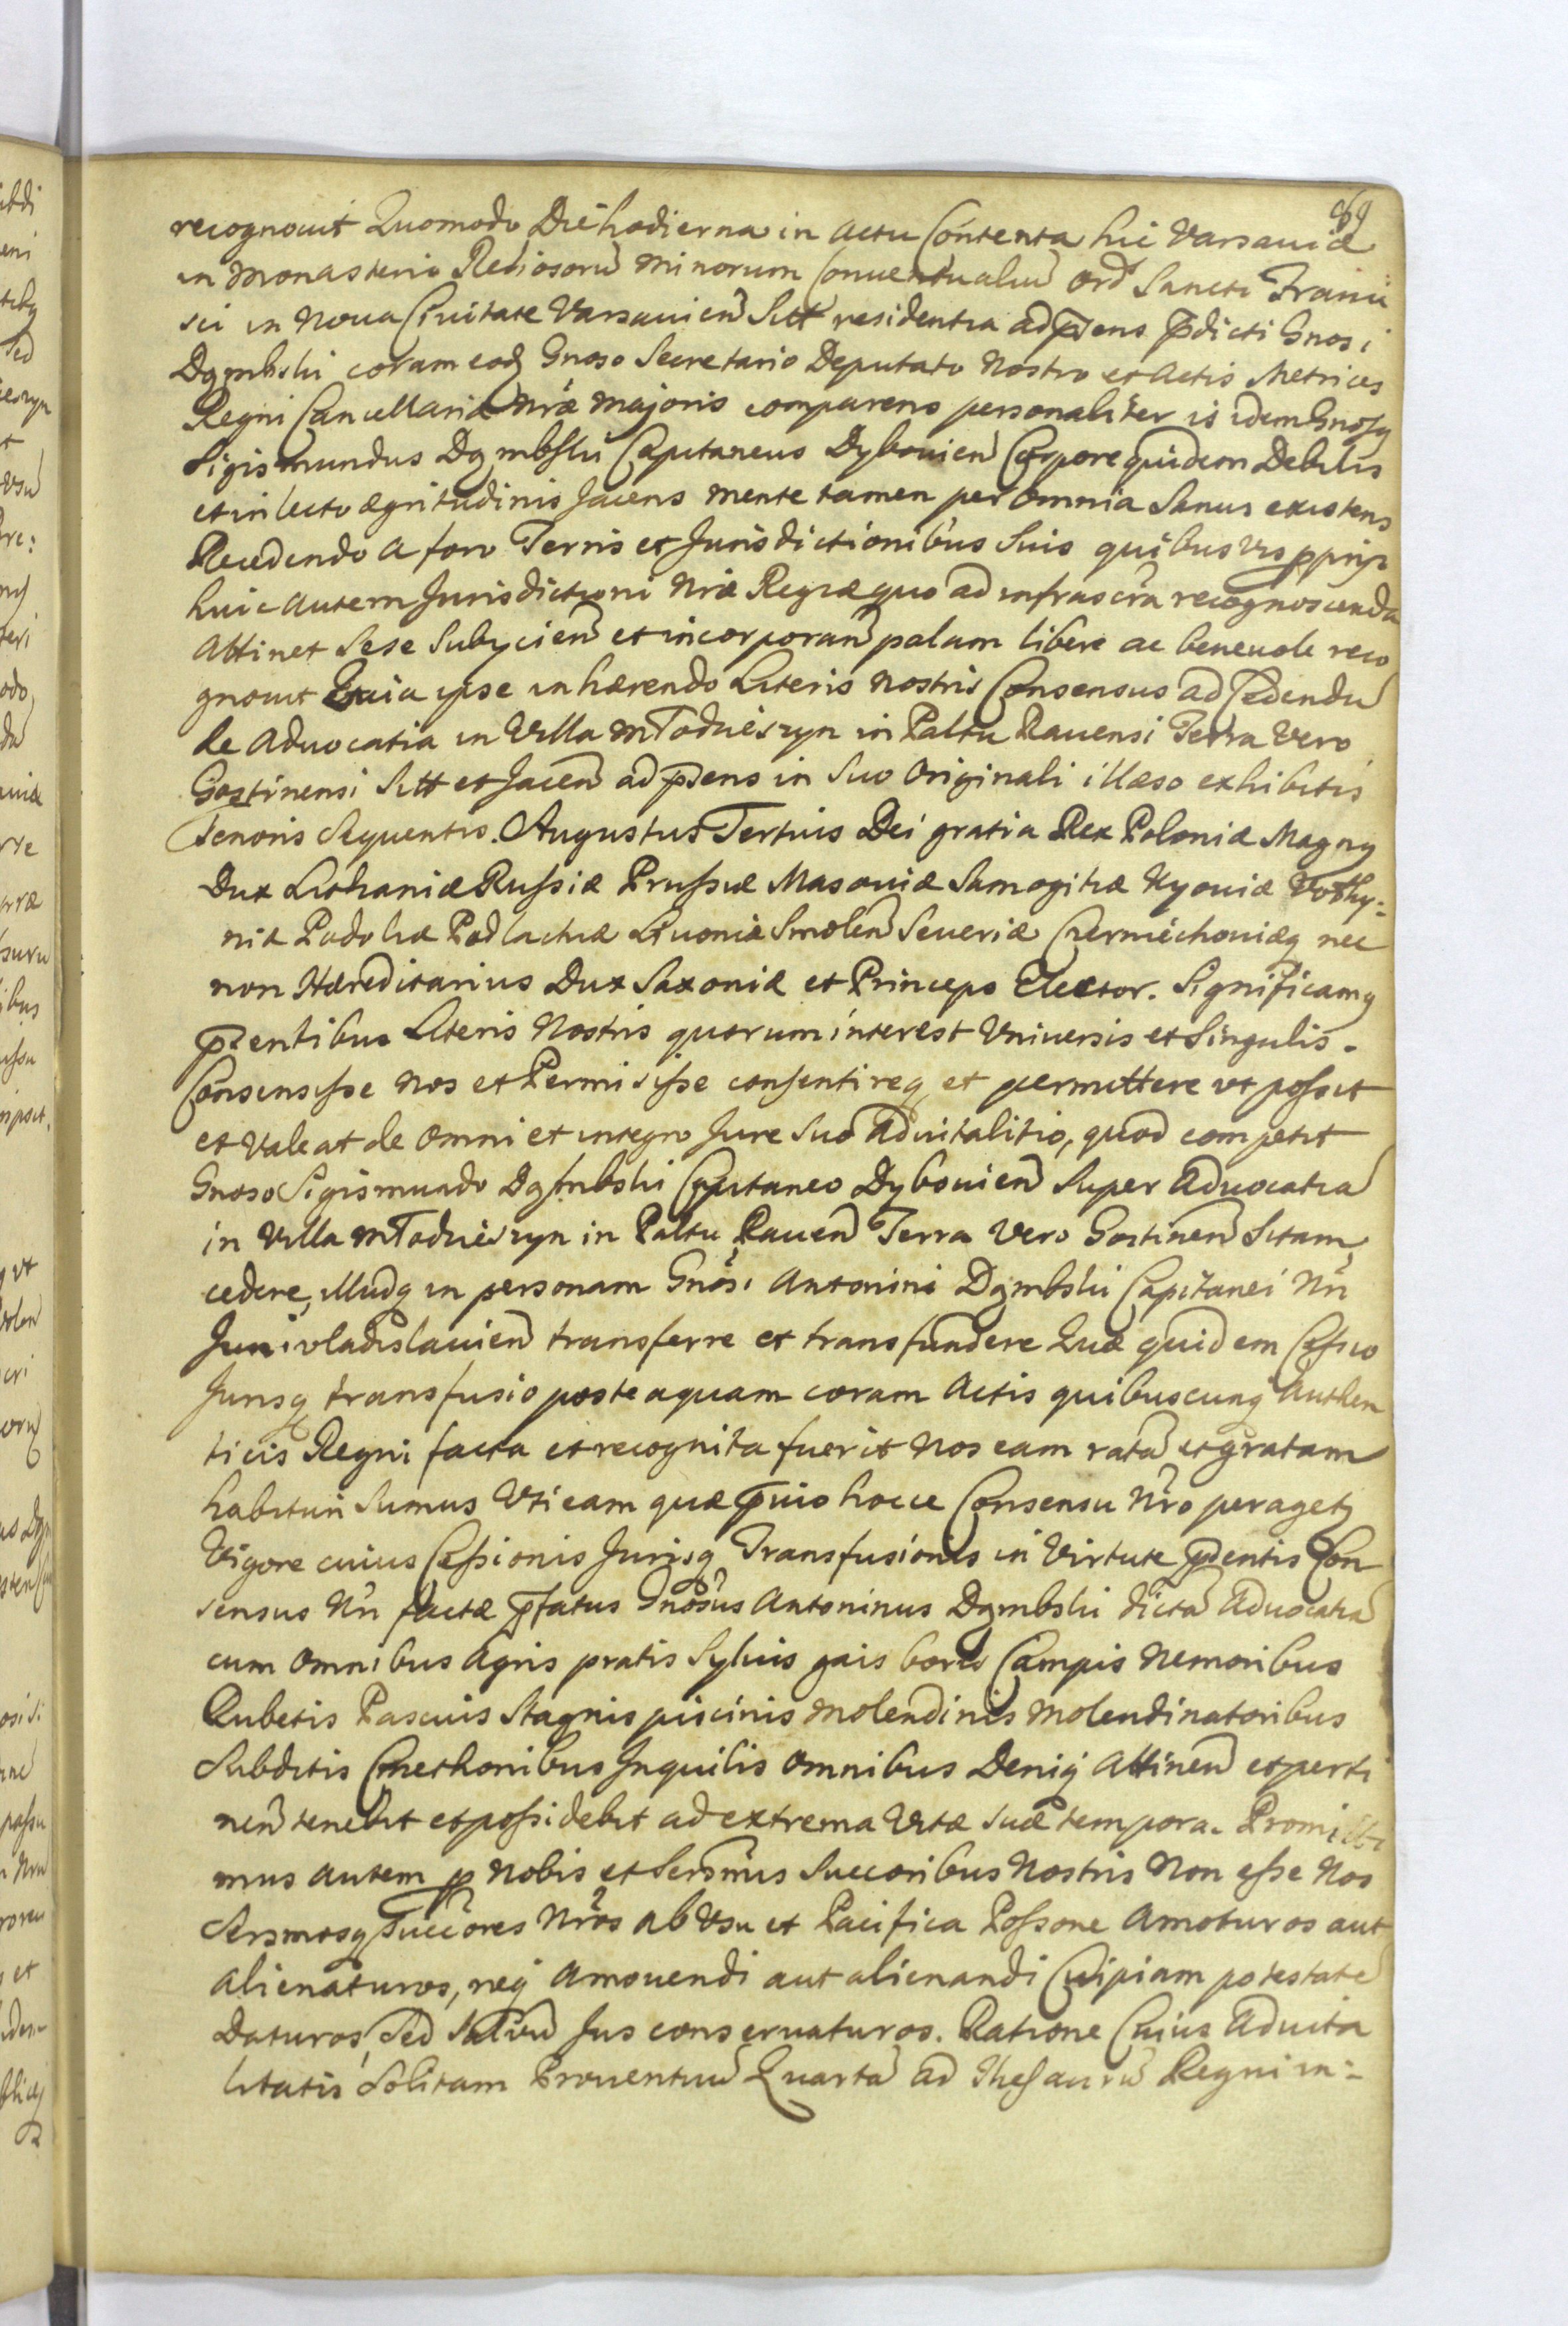 recognouit Quomodo Die hodierna in actu Contenta hic Varsauiæ
in Monasterio Reliosorũ Minorum Conuentualiũ Ord Sancti Franci
sci in Noua Ciuitate Varsauien Sitt residentia ad prsens prdicti Gnosi
Dąmbski coram eodq Gnoso Secretario Deputato Nostro et Actis Metrices
Regni Cancellariæ Nræ Majoris comparens personaliter is idem Gnosq
Sigismundus Dąmbski Capitaneus Dybouien Corpore quidem Debilis
et in lecto ægritudinis Jacens mente tamen per omnia Sanus existens
Recedendo a foro Terris et Jurisdictionibus Suis quibusvis pprijs
huic autem Jurisdictioni Nræ Regiæ quo ad infrascra recognoscenda
Attinet Sese Subycien et incorporan palam libere ac beneuole reco
gnouit Quia ipse inhærendo Literis Nostris Consensus ad Cedendũ
de Advocatia in Villa Młodzieszyn in Paltu Rauensi Terra Vero
Gostinensi Sitt et Jacen ad prsens in Suo Originali illæso exhibitis
Tenoris Sequentis. Augustus Tertius Dei gratia Rex Poloniæ Magnq
Dux Lithaniæ Russiæ Prussiæ Masouiæ Samogitiæ Kyouiæ Vołhy:
niæ Podoliæ Podlachiæ Liuoniæ Smolen Seueriæ Czerniechouiæq nec
non Hæreditarius Dux Saxoniæ et Princeps Elector. Significamq
prsentibus Literis Nostris quorum interest Vniuersis et Singulis.
Consensisse Nos et Permisisse consentireq et permittere vt possit
et Valeat de Omni et integro Jure Suo Aduitalitio, quod competit
Gnoso Sigismundo Dąmbski Capitaneo Dybouien Super Aduocatia
in Villa Młodzieszyn in Paltu Rauen Terra Vero Gostinen Sitam
cedere, Illudq in personam Gnosi Antonini Dąmbski Capitanei Nri
Junivladislauien transferre et transfundere Quæ quidem Cessio
Jurisq transfusio posteaquam coram Actis quibuscunq Authen
ticis Regni facta et recognita fuerit Nos eam ratã et gratam
habituri Sumus Vti eam quæ prvio hocce Consensu Nro peragetq
Vigore cuius Cessionis Jurisq Transfusionis in Virtute prsentis Con
sensus Nri factæ prfatus Gnosus Antoninus Dąmbski dictã Aduocatiã
cum Omnibus Agris pratis Syluis gais boris Campis Nemoribus
Rubetis Pascuis Stagnis piscinis Molendinis Molendinatoribus
Subditis Cmethonibus Inquilis Omnibus Deniq Attinen et perti
nen tenebit et possidebit ad extrema Vitæ Suæ tempora. Promitti
mus autem p Nobis et Sersmis Succoribus Nostris Non esse Nos
Sersmosq Succores Nros ab Vsu et Pacifica Possone Amoturos aut
alienaturos, neq Amouendi aut alienandi Cuipiam potestatẽ
Daturos, Sed Saluũ Jus conseruaturos. Ratione Cuius Aduita
litatis Solitam Prouentuũ Quartã ad Thesaurũ Regni in: